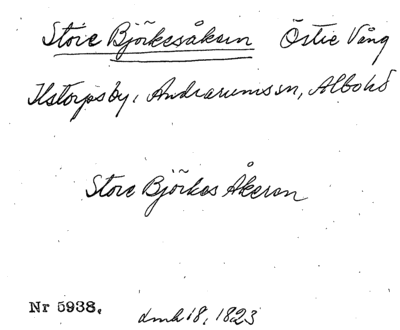 Store Björkesåkern Östre Vång
Ilstorps by, Andrarums sn, Albo hd
Store Björkes Åkeren
Nr 5938. dmk 18, 1823